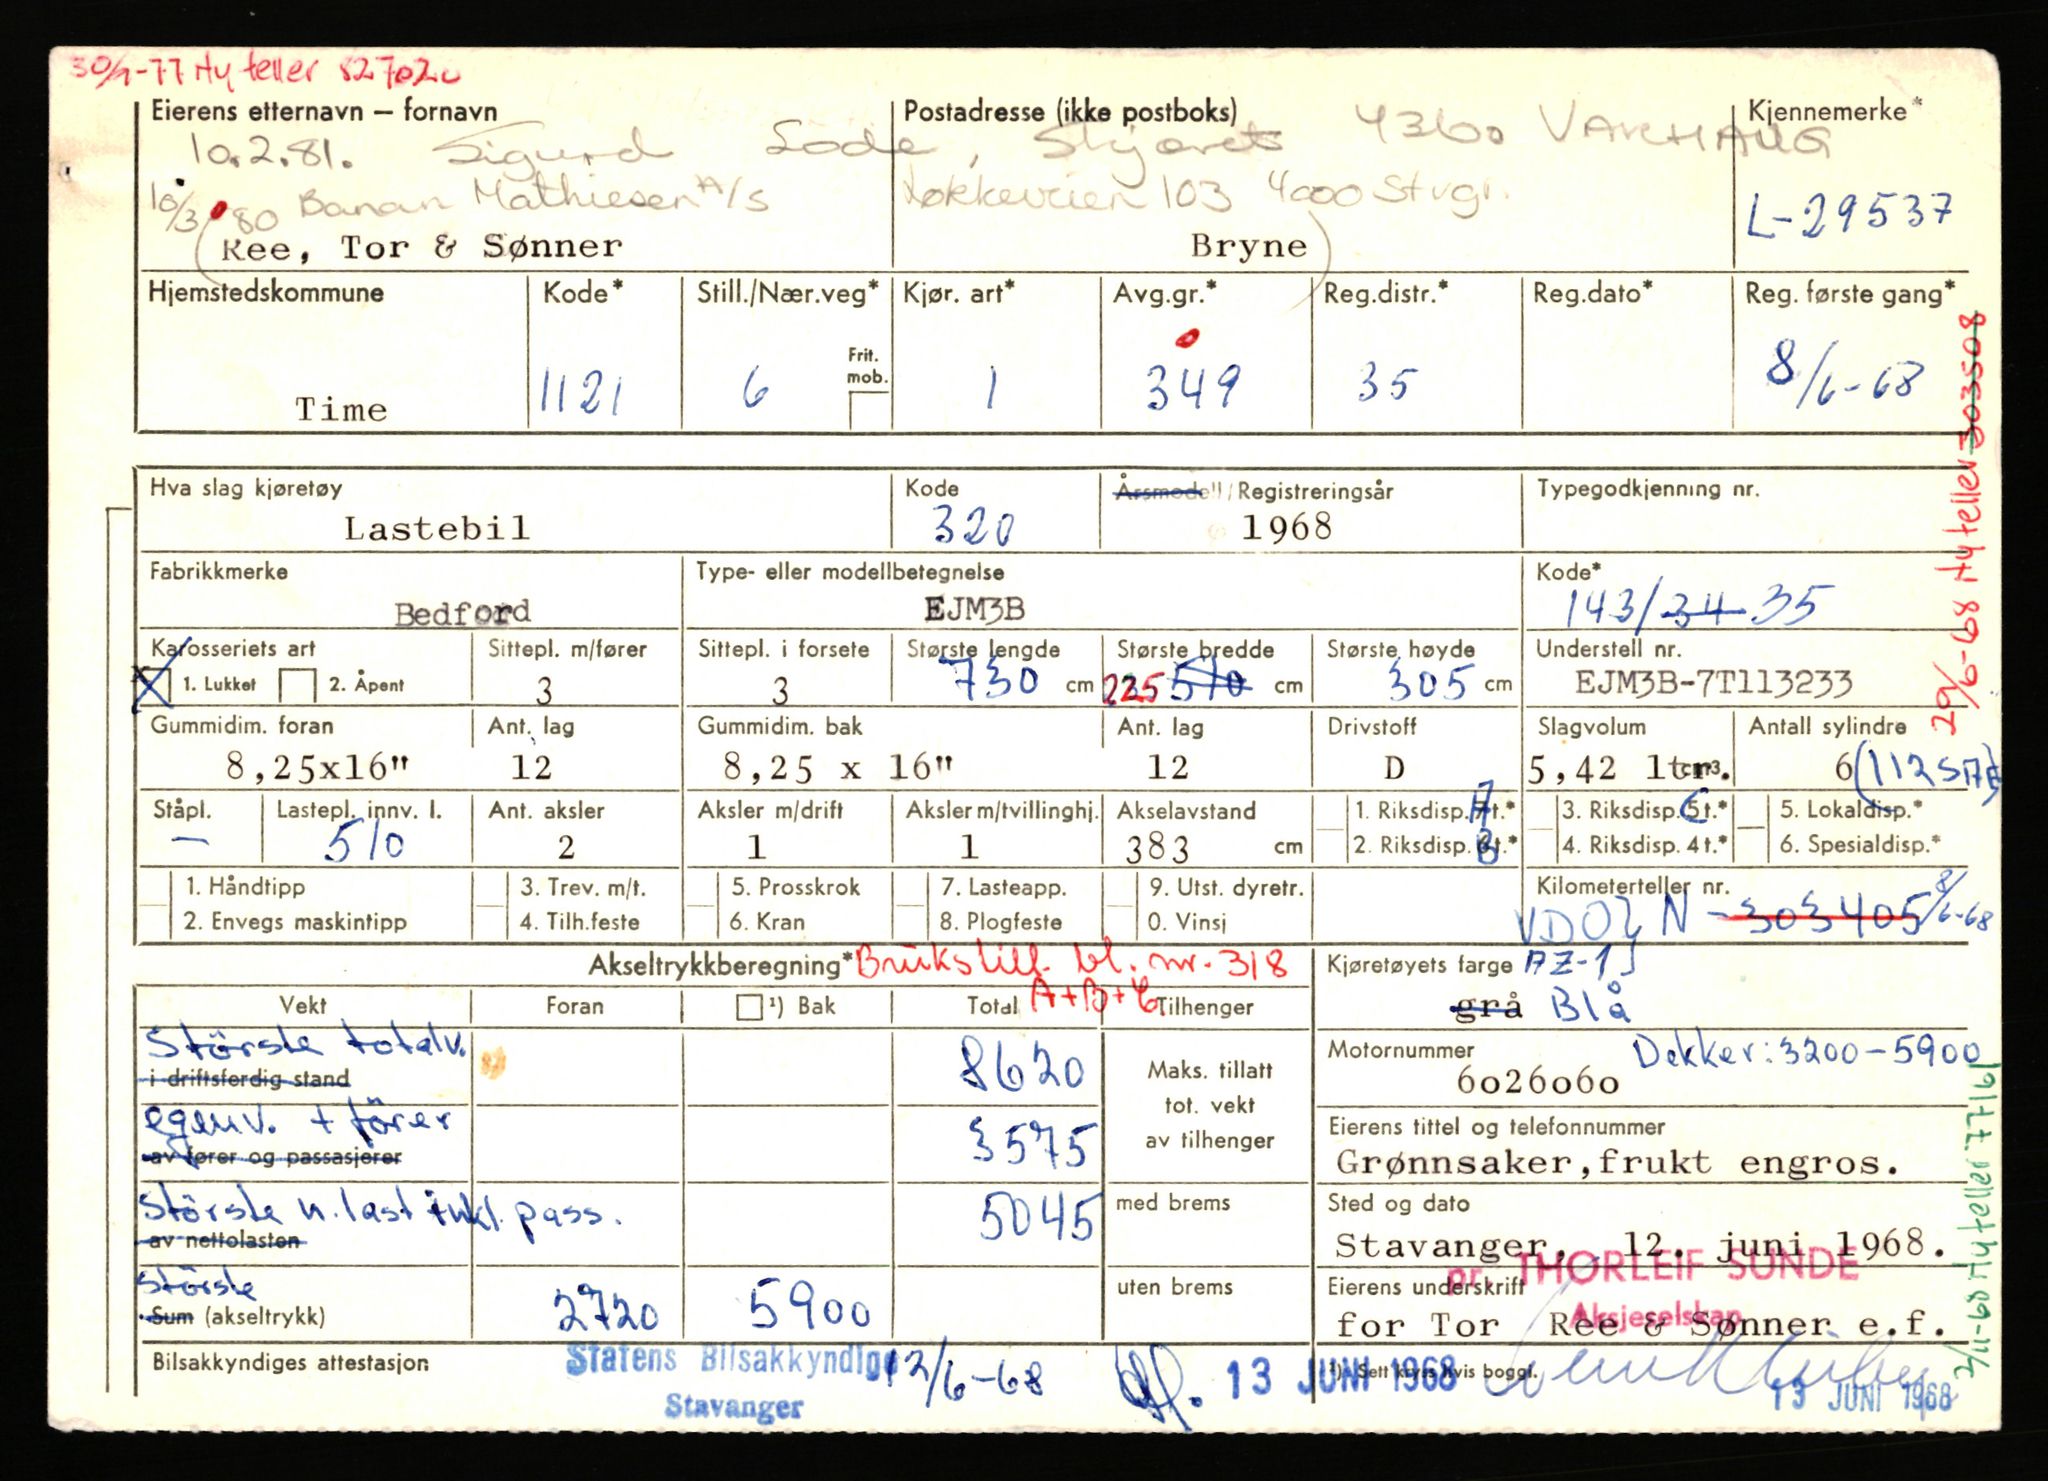 30/1-77 Ny teller 827020
Eierens etternavn — fornavn
Postadresse (ikke postboks)
Kjennemerke*
10.2.81. Sigurd Lode, 4360 VARHAUG
10/3 80 Banan Mathiesen A/S Løkkeveien 103 4000 Stvgr.
L-29537
Ree, Tor & Sønner Bryne
Hjemstedskommune Kode* Still./Nær.veg* Kjør. art* Avg.gr.* Reg.distr.* Reg.dato* Reg. første gang*
Frit. mob.
Time 1121 6 1 349 35 8/6-68
Hva slag kjøretøy Kode Årsmodell/Registreringsår Typegodkjenning nr.
Lastebil 320 1968
Fabrikkmerke Type- eller modellbetegnelse Kode*
Bedford EJM3B 143/34 35
Karosseriets art Sittepl. m/fører Sittepl. i forsete Største lengde Største bredde Største høyde Understell nr.
X 1. Lukket 2. Åpent 3 3 730 cm 225 510 cm 305 cm EJM3B-7T113233
Gummidim. foran Ant. lag Gummidim. bak Ant. lag Drivstoff Slagvolum Antall sylindre
8,25x16" 12 8,25 x 16" 12 D 5,42 ltr. cm³ 6 (112 SAE)
Ståpl. Lastepl. innv. l. Ant. aksler Aksler m/drift Aksler m/tvillinghj. Akselavstand 1. Riksdisp. 7t.* 3. Riksdisp. 5t.* 5. Lokaldisp.*
— 510 2 1 1 383 cm 2. Riksdisp. 6t.* 4. Riksdisp. 4t.* 6. Spesialdisp.*
1. Håndtipp 3. Trev. m/t. 5. Prosskrok 7. Lasteapp. 9. Utst. dyretr. Kilometerteller nr.
2. Envegs maskintipp 4. Tilh.feste 6. Kran 8. Plogfeste 0. Vinsj VDO N - 303405 8/6-68
Akseltrykkberegning* Brukstill. bl. nr. 318
A+B+C
Kjøretøyets farge AZ-1
grå Blå
Vekt Foran ¹) Bak Total Tilhenger
Største totalv. 8620
i driftsferdig stand
Maks. tillatt
tot. vekt
av tilhenger
Motornummer Dekker: 3200-5900
6026060
egenv. + fører 3575
av fører og passasjerer
Eierens tittel og telefonnummer
Grønnsaker, frukt engros.
Største n. last inkl. pass. 5045
av nettolasten
med brems
Sted og dato
Stavanger, 12. juni 1968.
Største
Sum (akseltrykk) 2720 5900
uten brems
Eierens underskrift
pr. THORLEIF SUNDE
Aksjeselskap
for Tor Ree & Sønner e.f.
Bilsakkyndiges attestasjon
Statens Bilsakkyndige
Stavanger
12/6-68
13 JUNI 1968
¹) Sett kryss hvis boggi.
13 JUNI 1968
29/6-68 Ny teller 303508
2/11-68 Ny teller 77161